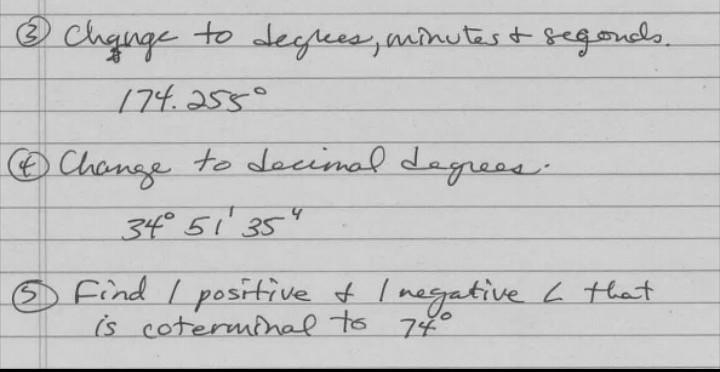 ③ Change to degrees, minutes & segonds.
174.255°
④ Change to decimal degrees.
34° 51' 35"
⑤ Find 1 positive & 1 negative ∠ that
is coterminal to 74°